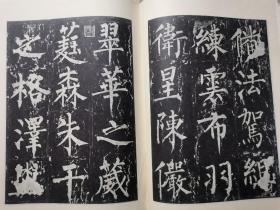 備法駕組
練雲布羽
衛星陳儼
翠華之葳
蕤森朱干
之格澤盥